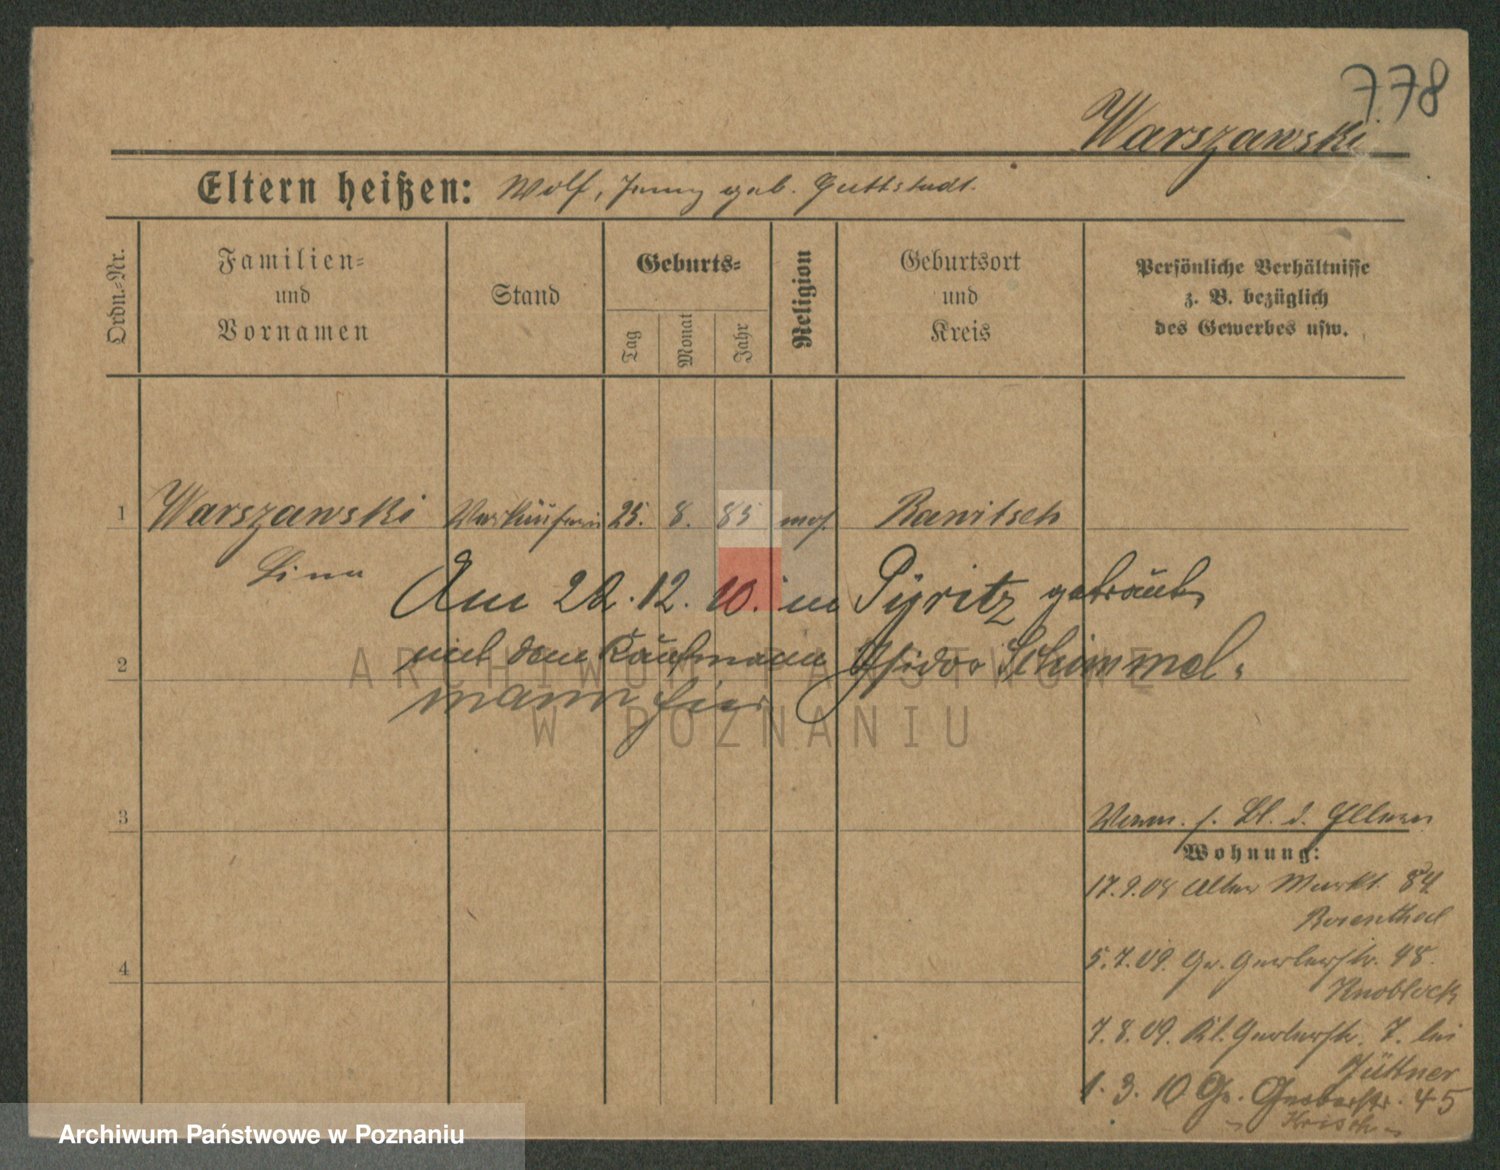 778
Warszawski
Eltern heißen: Wolf, Jenny geb. Guttstadt.
Ordn.=Nr.
Familien=
und
Vornamen
Stand
Geburts=
Tag
Monat
Jahr
Religion
Geburtsort
und
Kreis
Persönliche Verhältnisse
z. B. bezüglich
des Gewerbes usw.
1 Warszawski Verkäuferin 25. 8. 85 mos. Rawitsch
Lina
Am 22.12.10. in Pyritz getraut
2 mit dem Kaufmann Isidor Schimmel-
mann hier
3
Verm. s. Bl. d. Eltern
Wohnung:
17.9.08 Alter Markt 84
Rosenthal
4
5.7.09. Gr. Gerberstr. 48.
Knoblock
7.8.09. Kl. Gerberstr. 7. bei
Jüttner
1. 3. 10 Gr. Gerberstr. 45
ARCHIWUM PAŃSTWOWE
W POZNANIU
Archiwum Państwowe w Poznaniu